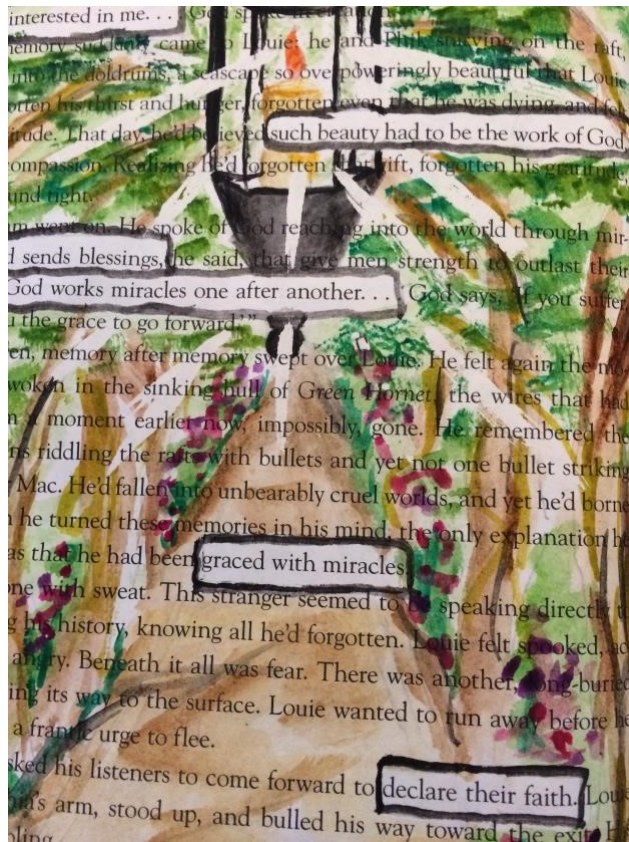 interested in me. . . God spoke
memory suddenly came to Louie: he and Phil starving on the raft,
into the doldrums, a seascape so overpoweringly beautiful that Louie
his thirst and hunger, forgotten even that he was dying, and
That day, he'd believed such beauty had to be the work of God
compassion. Realizing he'd forgotten that gift, forgotten his gratitude,
tight.
went on. He spoke of God reaching into the world through mir-
sends blessings, he said, that give men strength to outlast their
God works miracles one after another. . . God says, 'If you suffer
the grace to go forward.'"
memory after memory swept over Louie. He felt again the
in the sinking hull of Green Hornet, the wires that had
a moment earlier now, impossibly, gone. He remembered the
riddling the rafts with bullets and yet not one bullet striking
Mac. He'd fallen into unbearably cruel worlds, and yet he'd borne
he turned these memories in his mind, the only explanation he
as that he had been graced with miracles.
with sweat. This stranger seemed to be speaking directly
his history, knowing all he'd forgotten. Louie felt spooked,
angry. Beneath it all was fear. There was another, long-buried
its way to the surface. Louie wanted to run away before he
a frantic urge to flee.
his listeners to come forward to declare their faith.
arm, stood up, and bulled his way toward the exit.